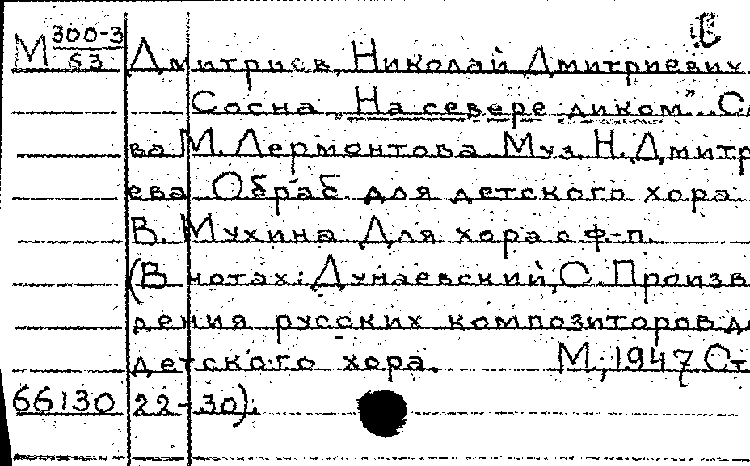 М 300-3/53 Дмитриев, Николай Дмитриевич
Сосна „На севере диком". Сл
ва М. Лермонтова. Муз. Н. Дмитр
ева. Обраб. для детского хора
В. Мухина. Для хора с ф-п.
(В нотах: Дунаевский, С. Произв
дения русских композиторов д
детского хора. М., 1947 Ст
66130 22-30).